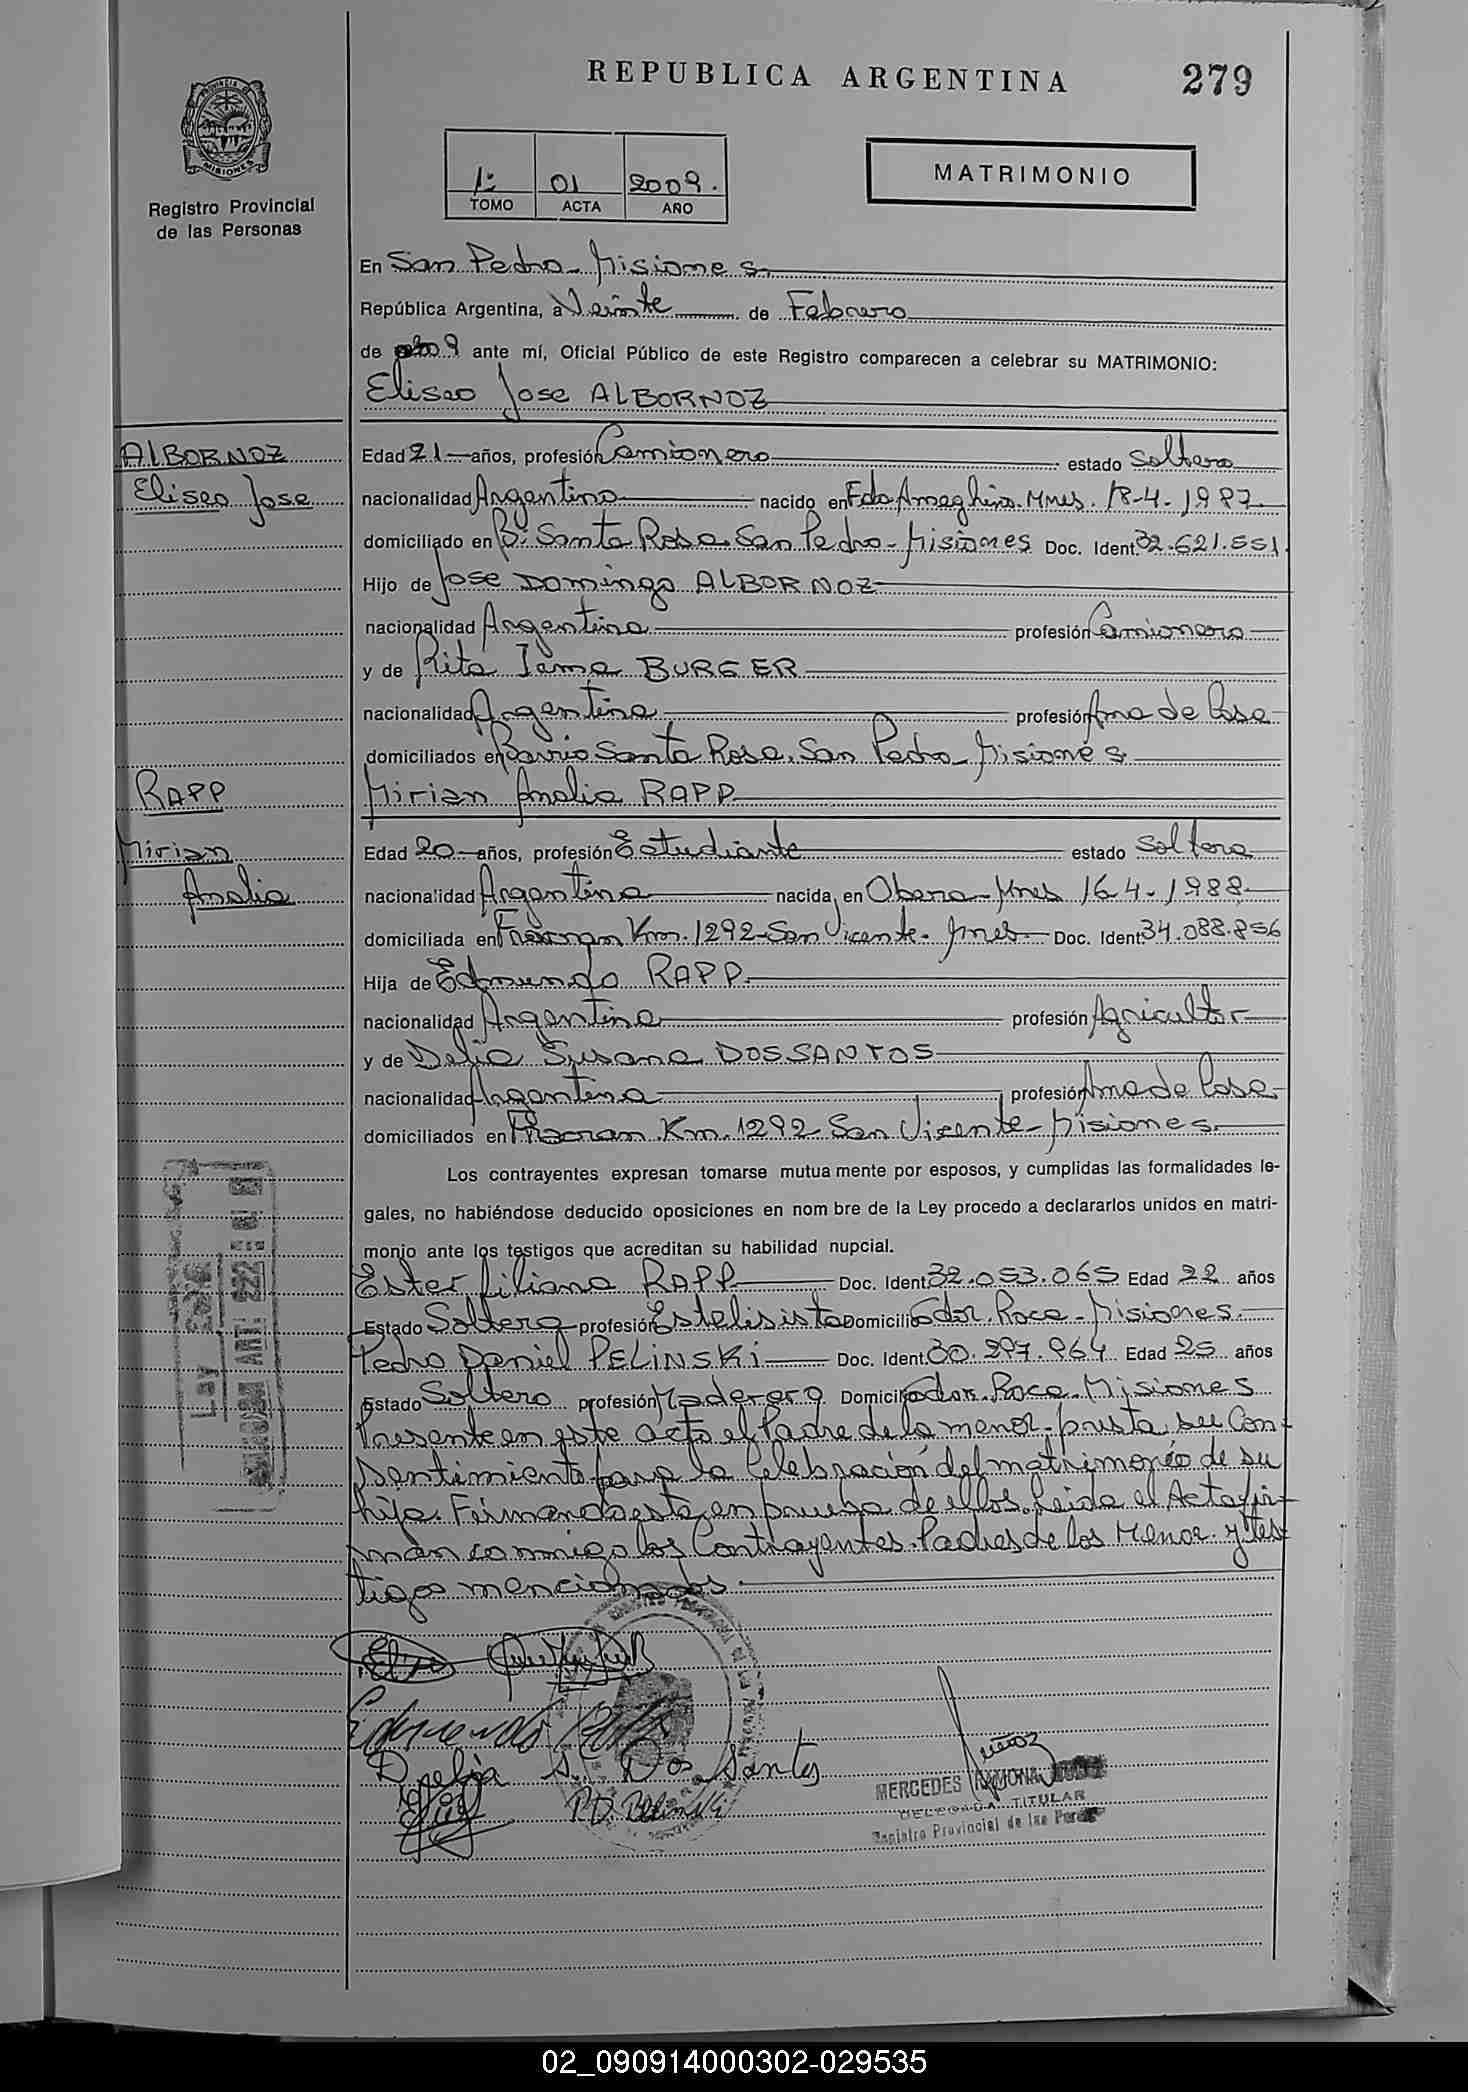 REPUBLICA ARGENTINA
279
PROVINCIA DE
MISIONES
Registro Provincial
de las Personas
1: 01 2009.
TOMO ACTA AÑO
MATRIMONIO
En San Pedro - Misiones
República Argentina, a Veinte de Febrero
de 2009 ante mí, Oficial Público de este Registro comparecen a celebrar su MATRIMONIO:
Eliseo Jose ALBORNOZ
ALBORNOZ
Eliseo Jose
Edad 21 años, profesión Camionero estado Soltero
nacionalidad Argentino nacido en Fdo Ameghino. Mnes. 18-4-1987
domiciliado en Bº Santa Rosa. San Pedro - Misiones Doc. Ident. 32.621.551
Hijo de Jose Domingo ALBORNOZ
nacionalidad Argentino profesión Camionero
y de Rita Irma BURGER
nacionalidad Argentina profesión Ama de Casa
domiciliados en Barrio Santa Rosa. San Pedro - Misiones
RAPP
Mirian
Analia
Mirian Analia RAPP
Edad 20 años, profesión Estudiante estado Soltera
nacionalidad Argentina nacida en Obera - Mnes 16-4-1988
domiciliada en Fracran Km. 1292 San Vicente - Mnes Doc. Ident. 34.088.856
Hija de Edmundo RAPP
nacionalidad Argentino profesión Agricultor
y de Delia Susana DOSSANTOS
nacionalidad Argentina profesión Ama de Casa
domiciliados en Fracran Km. 1292 San Vicente - Misiones
Los contrayentes expresan tomarse mutua mente por esposos, y cumplidas las formalidades le-
gales, no habiéndose deducido oposiciones en nom bre de la Ley procedo a declararlos unidos en matri-
monio ante los testigos que acreditan su habilidad nupcial.
Ester Liliana RAPP Doc. Ident. 32.053.065 Edad 22 años
Estado Soltera profesión Estelisista Domicilio Gdor. Roca - Misiones
Pedro Daniel PELINSKI Doc. Ident. 30.297.964 Edad 25 años
Estado Soltero profesión Maderero Domicilio Gdor. Roca - Misiones
Presente en este acto el Padre de la menor - presta su Con-
sentimiento para la Celebración del matrimonio de su
hija. Firmando esta en prueba de ellos. Leida el Acta fir-
man conmigo los Contrayentes. Padres de los Menor y tes-
tigos mencionados
Ley
ART.
Edmundo
Delia S. Dos Santos
P.D. Pelinski
MERCEDES RAMONA
DELEGADA TITULAR
Registro Provincial de las
02_090914000302-029535